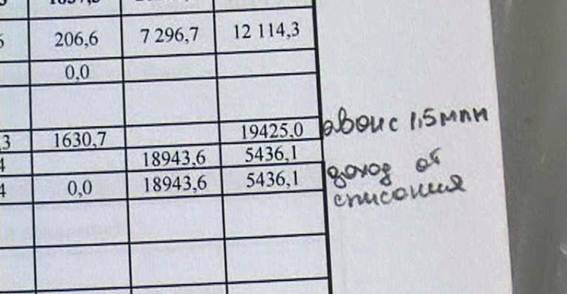 206,6 7 296,7 12 114,3
0,0
,3 1630,7 19425,0 авонс 1,5 млн
4 18943,6 5436,1
4 0,0 18943,6 5436,1
доход от
списония